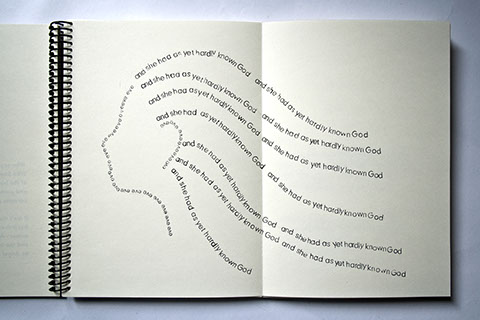 and she had as yet hardly known God and she had as yet hardly known God
and she had as yet hardly known God and she had as yet hardly known God
and she had as yet hardly known God and she had as yet hardly known God
and she had as yet hardly known God and she had as yet hardly known God
and she had as yet hardly known God and she had as yet hardly known God
and she had as yet hardly known God and she had as yet hardly known God
and she had as yet hardly known God